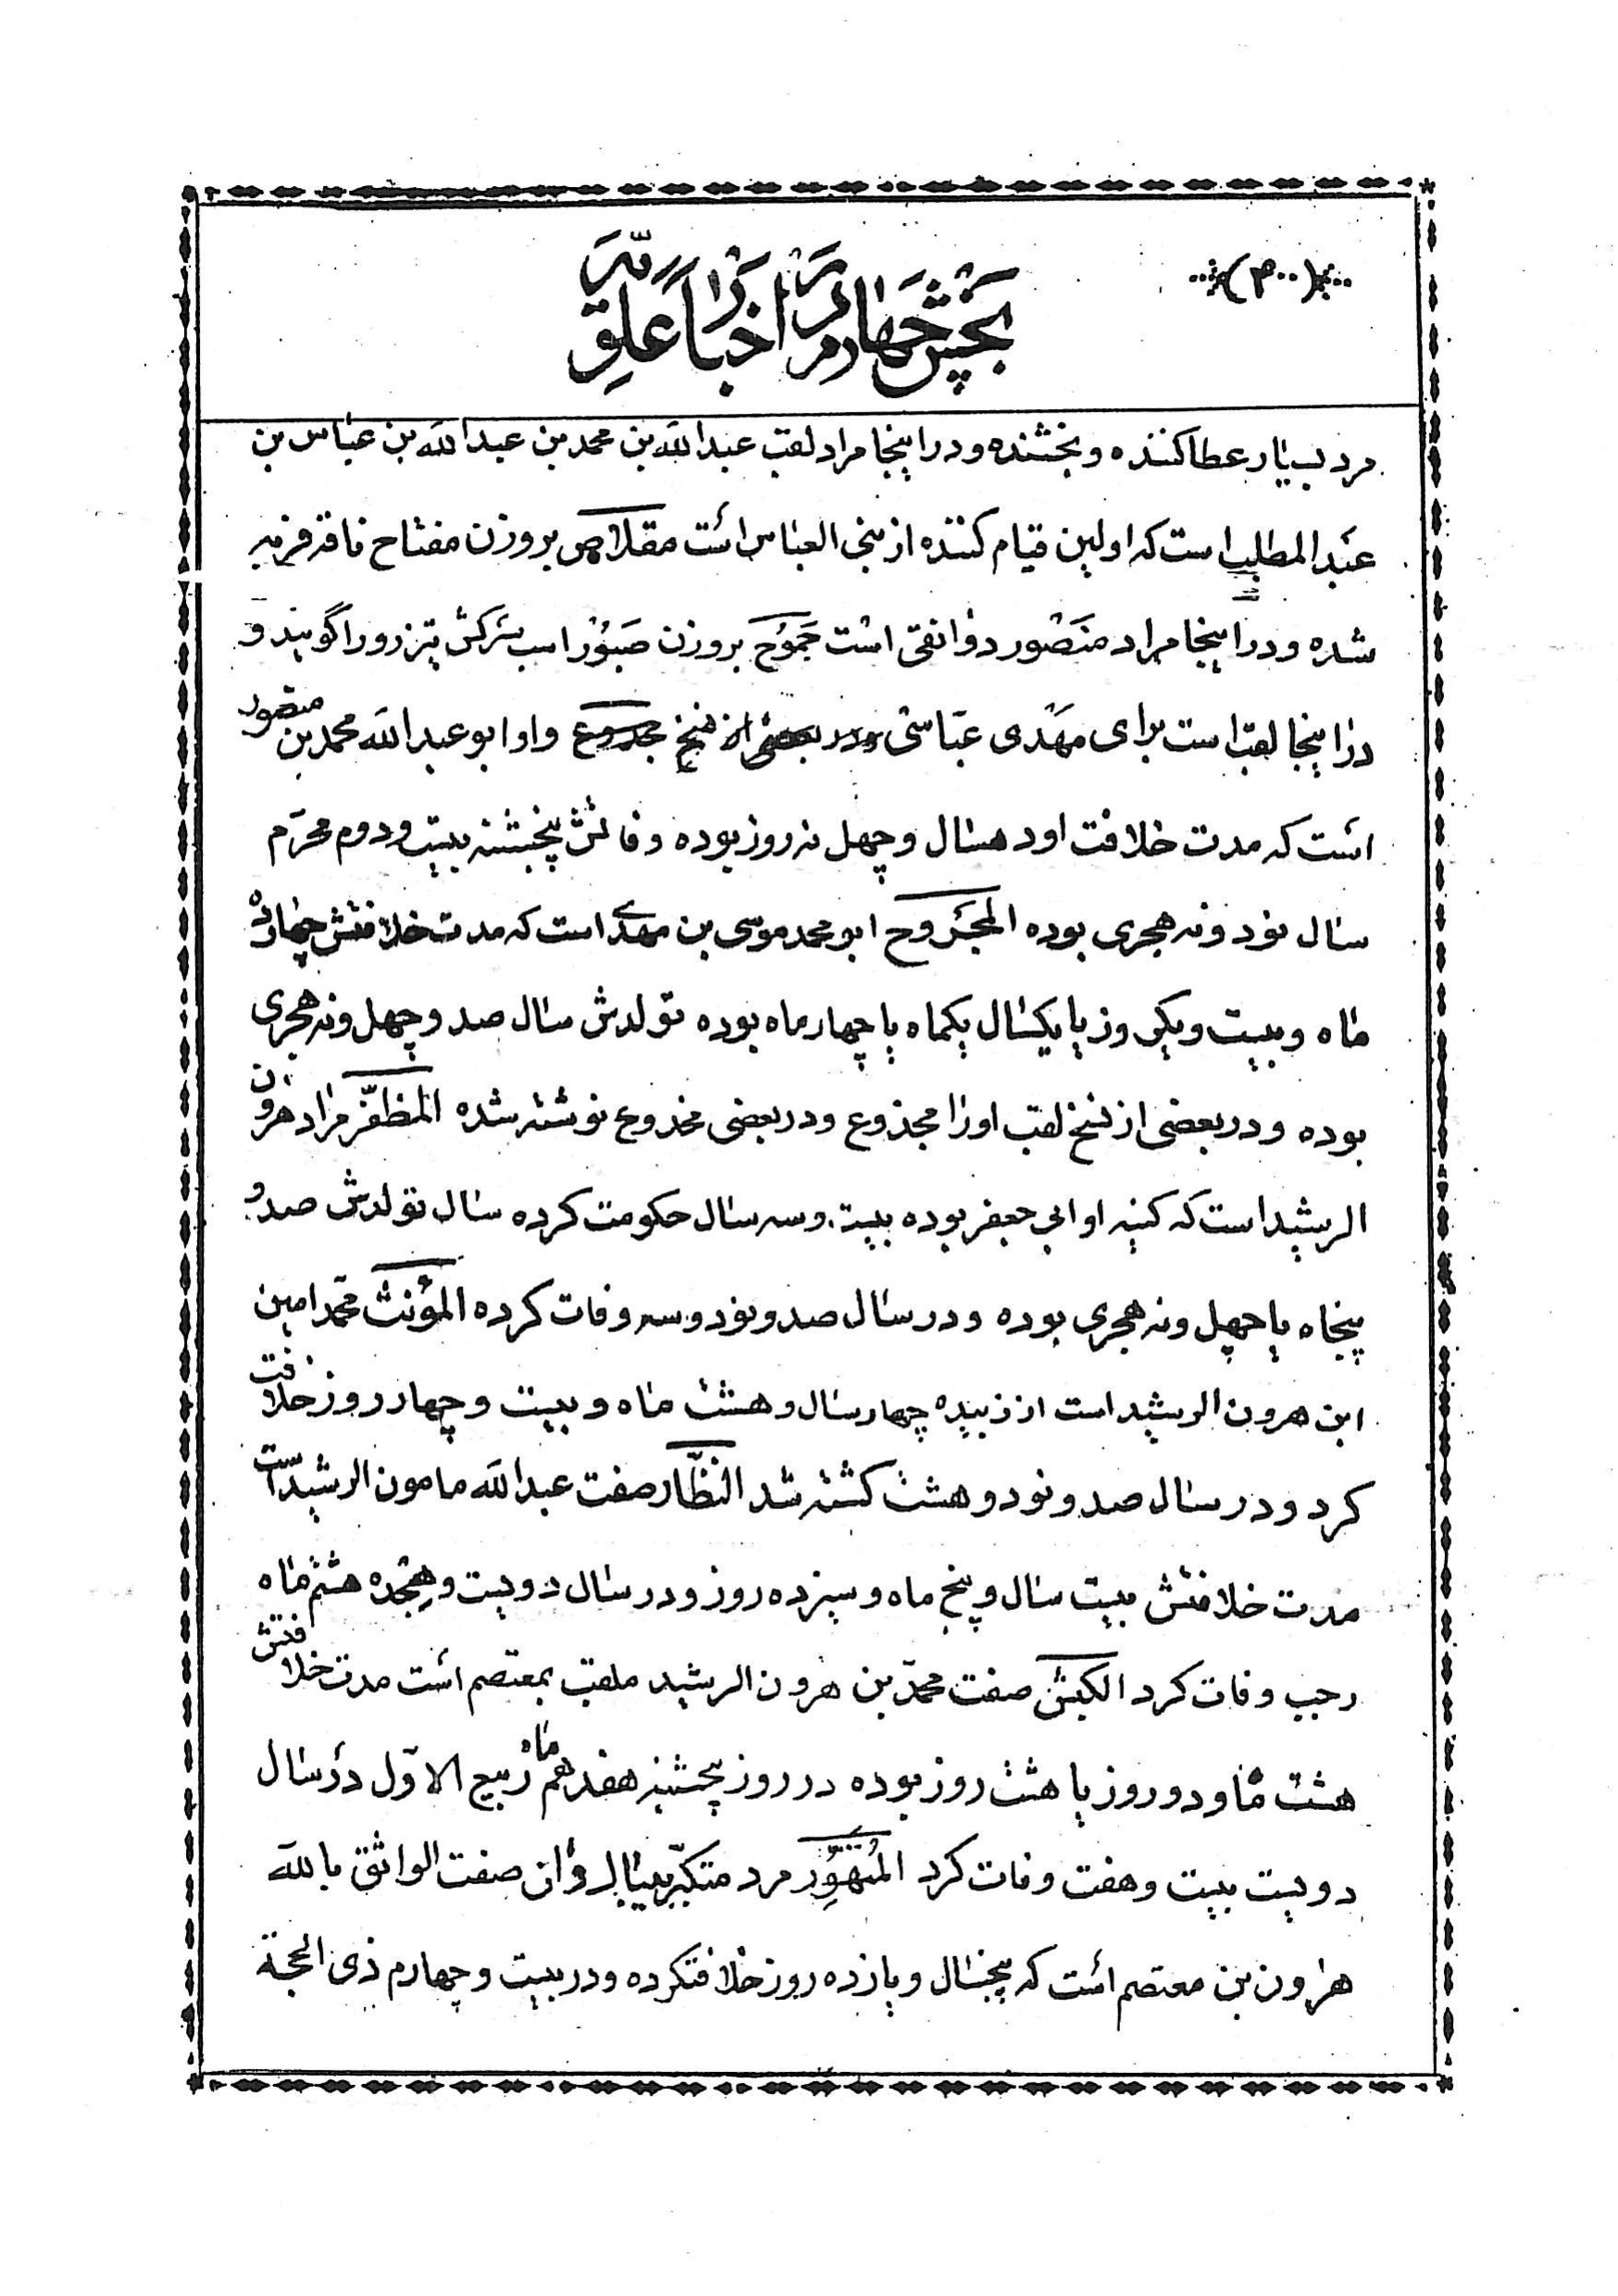 (۳۰۰)
بخش چهارم در اخبار علویّه
مرد بسیار عطا کننده و بخشنده و در اینجا مراد لقب عبدالله بن محمد بن عبدالله بن عباس بن
عبدالمطلب است که اولین قیام کننده از بنی العباس است مقلاص بر وزن مفتاح ناقه فربه
شده و در اینجا مراد منصور دوانقی است جموح بر وزن صبور اسب سرکش تیز رو را گویند و
در اینجا لقب است برای مهدی عباسی و در بعضی از نسخ مجدوع و او ابو عبدالله محمد بن منصور
است که مدت خلافت او ده سال و چهل نه روز بوده وفاتش پنجشنبه بیست و دوم محرّم
سال نود و نه هجری بوده المجروح ابو محمد موسی بن مهدی است که مدت خلافتش چهارده
ماه و بیست و یکروز یا یکسال یکماه یا چهار ماه بوده تولدش سال صد و چهل و نه هجری
بوده و در بعضی از نسخ لقب او را مجذوع و در بعضی مخدوع نوشته شده المظفّر مراد هرون
الرشید است که کنیه او ابی جعفر بوده بیست و سه سال حکومت کرده سال تولدش صد و
پنجاه یا چهل و نه هجری بوده و در سال صد و نود و سه وفات کرده المؤنث محمّد امین
ابن هرون الرشید است از زبیده چهار سال و هشت ماه و بیست و چهار روز خلافت
کرد و در سال صد و نود و هشت کشته شد النظّار صفت عبدالله مامون الرشید است
مدت خلافتش بیست سال و پنج ماه و سیزده روز و در سال دویست و هیجده هشتم ماه
رجب وفات کرد الکبش صفت محمّد بن هرون الرشید ملقب بمعتصم است مدت خلافتش
هشت ماه و دو روز یا هشت روز بوده در روز پنجشنبه هفدهم ماه ربیع الاوّل در سال
دویست بیست و هفت وفات کرد المتهوّر مرد متکبّر بیباک و آن صفت الواثق بالله
هرون بن معتصم است که پنجسال و یازده روز خلافتکرده و در بیست و چهارم ذی الحجة